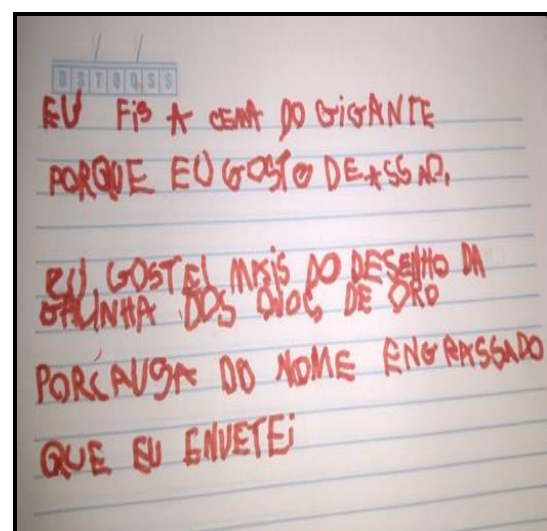 D S T Q Q S S
EU FiS A CENA DO GIGANTE
PORQUE EU GOSTO DE ASSÃO.
EU GOSTEI MAiS DO DESENHO DA
GALINHA DOS OVOS DE ORO
PORCAUSA DO NOME ENGRASSADO
QUE EU ENVETEi